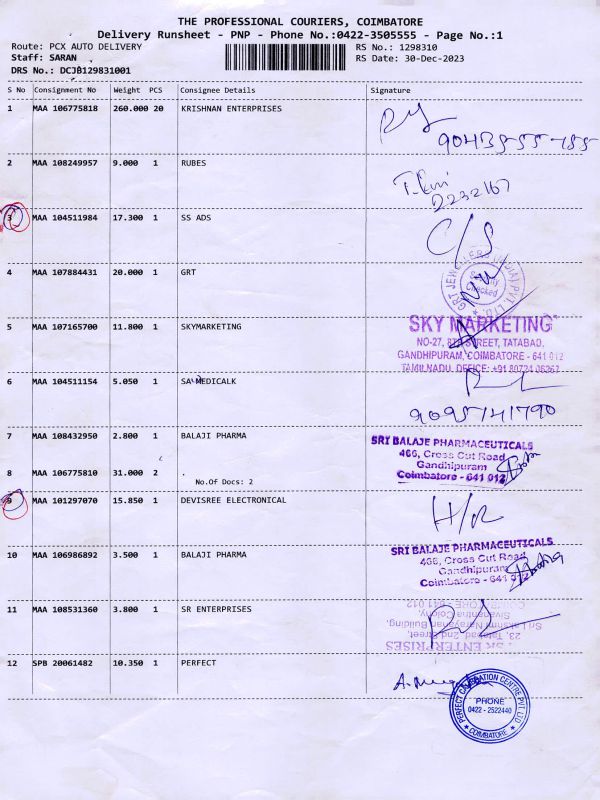 THE PROFESSIONAL COURIERS, COIMBATORE
Delivery Runsheet - PNP - Phone No.:0422-3505555 - Page No.:1
Route: PCX AUTO DELIVERY
RS No.: 1298310
Staff: SARAN
RS Date: 30-Dec-2023
DRS No.: DCJB129831001
S No Consignment No Weight PCS Consignee Details Signature
1 MAA 106775818 260.000 20 KRISHNAN ENTERPRISES
90435-55-155
2 MAA 108249957 9.000 1 RUBES
2232167
3 MAA 104511984 17.300 1 SS ADS
C/S
4 MAA 107884431 20.000 1 GRT
GRT JEWELLERS (INDIA) PVT. LTD.
Security Checked
5 MAA 107165700 11.800 1 SKYMARKETING
SKY MARKETING
NO-27, 8TH STREET, TATABAD,
GANDHIPURAM, COIMBATORE - 641 012
TAMILNADU. OFFICE: +91 80724 06262
6 MAA 104511154 5.050 1 SA MEDICALK
9095741790
7 MAA 108432950 2.800 1 BALAJI PHARMA
SRI BALAJE PHARMACEUTICALS
466, Cross Cut Road
Gandhipuram
Coimbatore - 641 012
8 MAA 106775810 31.000 2 .
No.Of Docs: 2
9 MAA 101297070 15.850 1 DEVISREE ELECTRONICAL
H/R
10 MAA 106986892 3.500 1 BALAJI PHARMA
SRI BALAJE PHARMACEUTICALS
466, Cross Cut Road
Gandhipuram
Coimbatore - 641 012
11 MAA 108531360 3.800 1 SR ENTERPRISES
SR ENTERPRISES
23, Tatabad, 2nd Street,
Sri Lakshmi Narayanan Building
Sivanantha Colony,
COIMBATORE - 641 012
12 SPB 20061482 10.350 1 PERFECT
PVT. LTD.
PHONE
0422 - 2522440
COIMBATORE